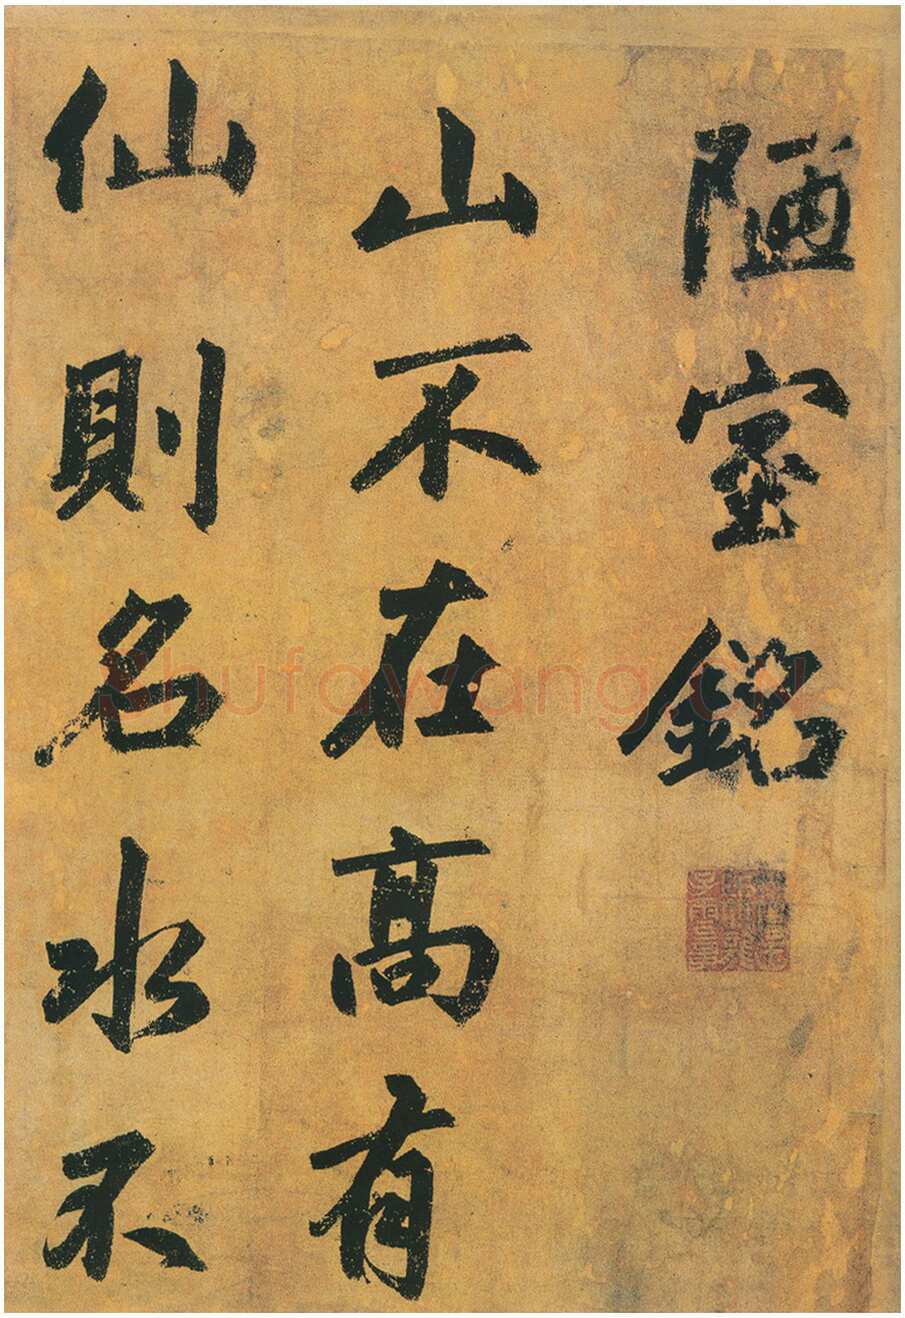 陋室銘
山不在高有
仙則名水不
Shufawang.CN